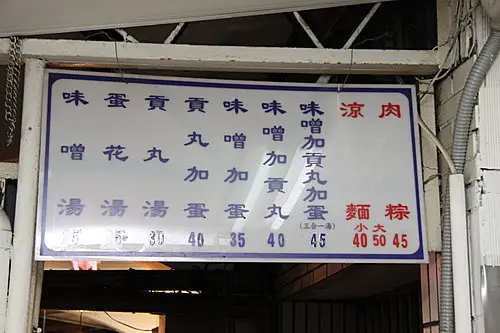 肉粽
45
涼麵
小 大
40 50
味噌加貢丸加蛋
(三合一湯)
45
味噌加貢丸
40
味噌加蛋
35
貢丸加蛋
40
貢丸湯
30
蛋花湯
味噌湯